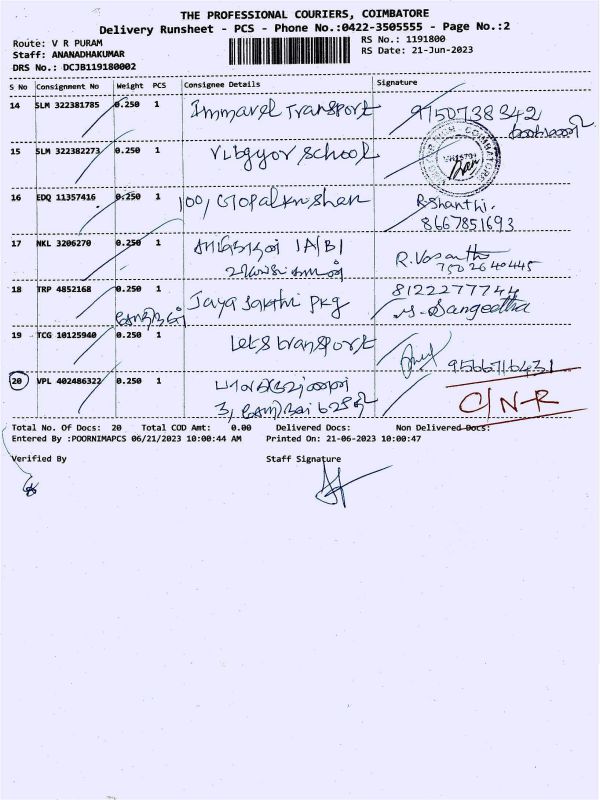 THE PROFESSIONAL COURIERS, COIMBATORE
Delivery Runsheet - PCS - Phone No.:0422-3505555 - Page No.:2
Route: V R PURAM
RS No.: 1191800
Staff: ANANADHAKUMAR
RS Date: 21-Jun-2023
DRS No.: DCJB119180002
S No Consignment No Weight PCS Consignee Details Signature
14 SLM 322381785 0.250 1 Transport 9750738342
15 SLM 322382273 0.250 1 vibgyor school
16 EDQ 11357416 0.250 1 100, R. Shanthi.
8667851693
17 NKL 3206270 0.250 1 1A/B1 R. Vasantha
7502640445
18 TRP 4852168 0.250 1 Jaya sakthi pkg 8122277744
M. Sangeetha
19 TCG 10125940 0.250 1 Lets transport 9566716431
20 VPL 402486322 0.250 1
3, C/N-R
Total No. Of Docs: 20 Total COD Amt: 0.00 Delivered Docs: Non Delivered Docs:
Entered By :POORNIMAPCS 06/21/2023 10:00:44 AM Printed On: 21-06-2023 10:00:47
Verified By Staff Signature